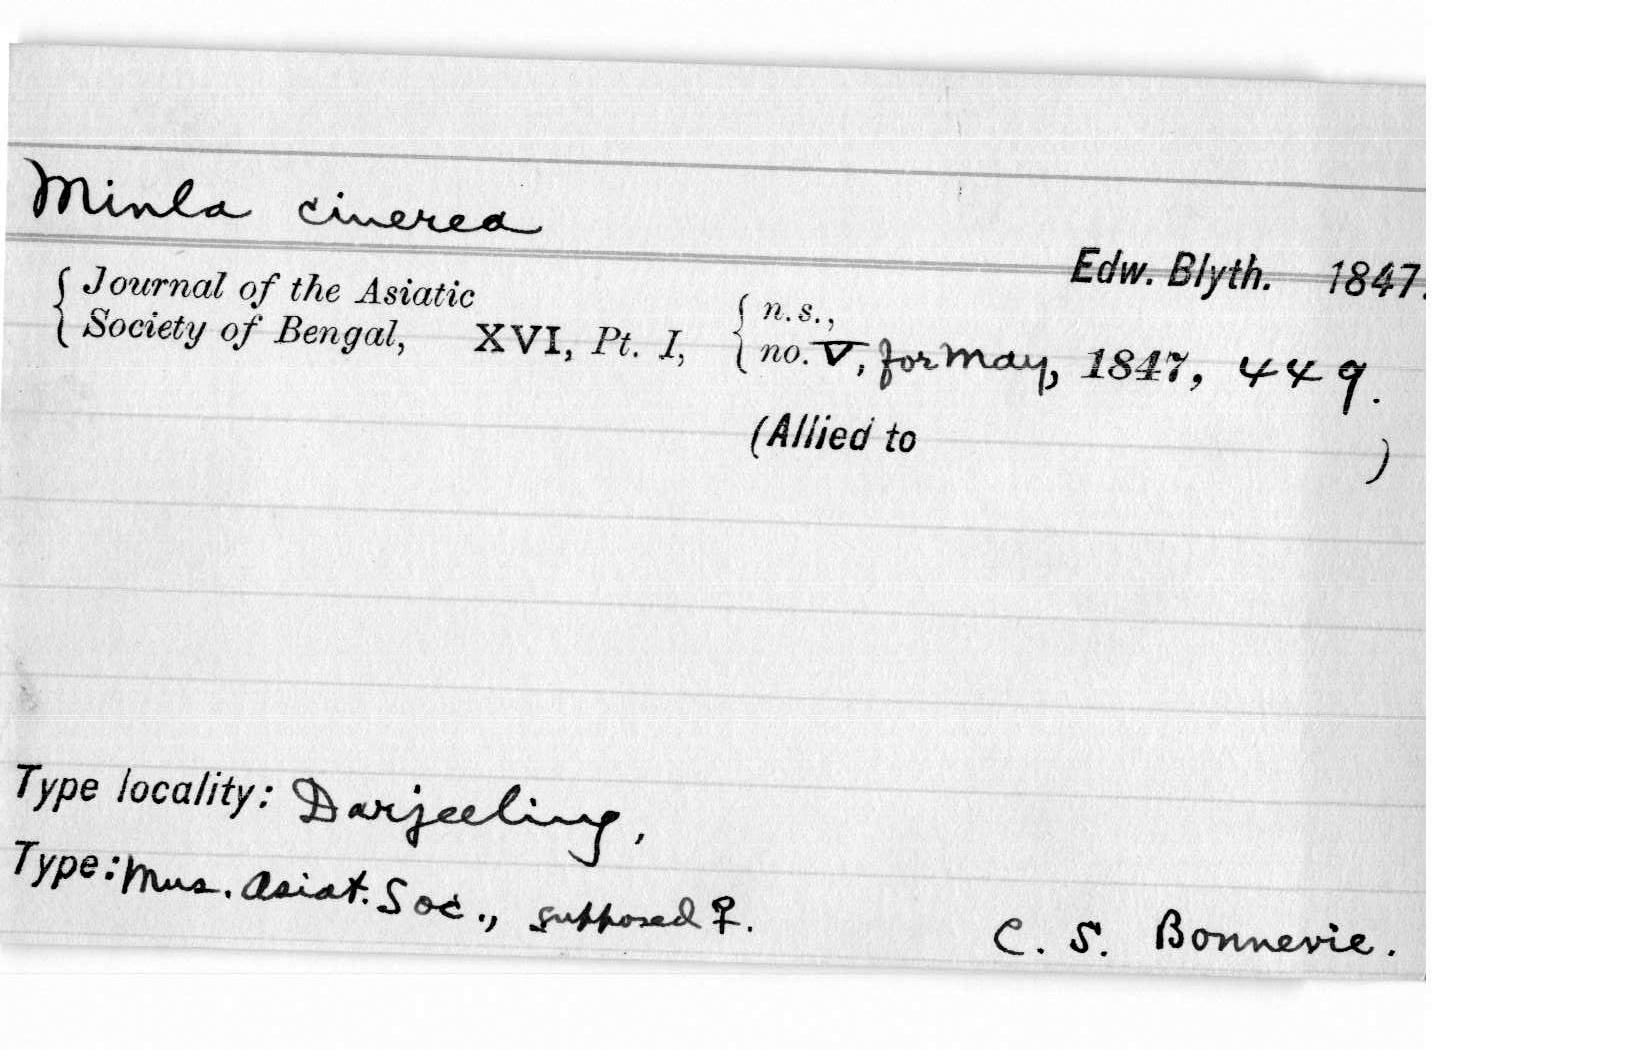 Minla cinerea
Edw. Blyth. 1847.
Journal of the Asiatic
Society of Bengal, XVI, Pt. I, n.s., no. V, for May, 1847, 449.
(Allied to )
Type locality: Darjeeling,
Type: Mus. Asiat. Soc., supposed ♀.
C. S. Bonnevie.